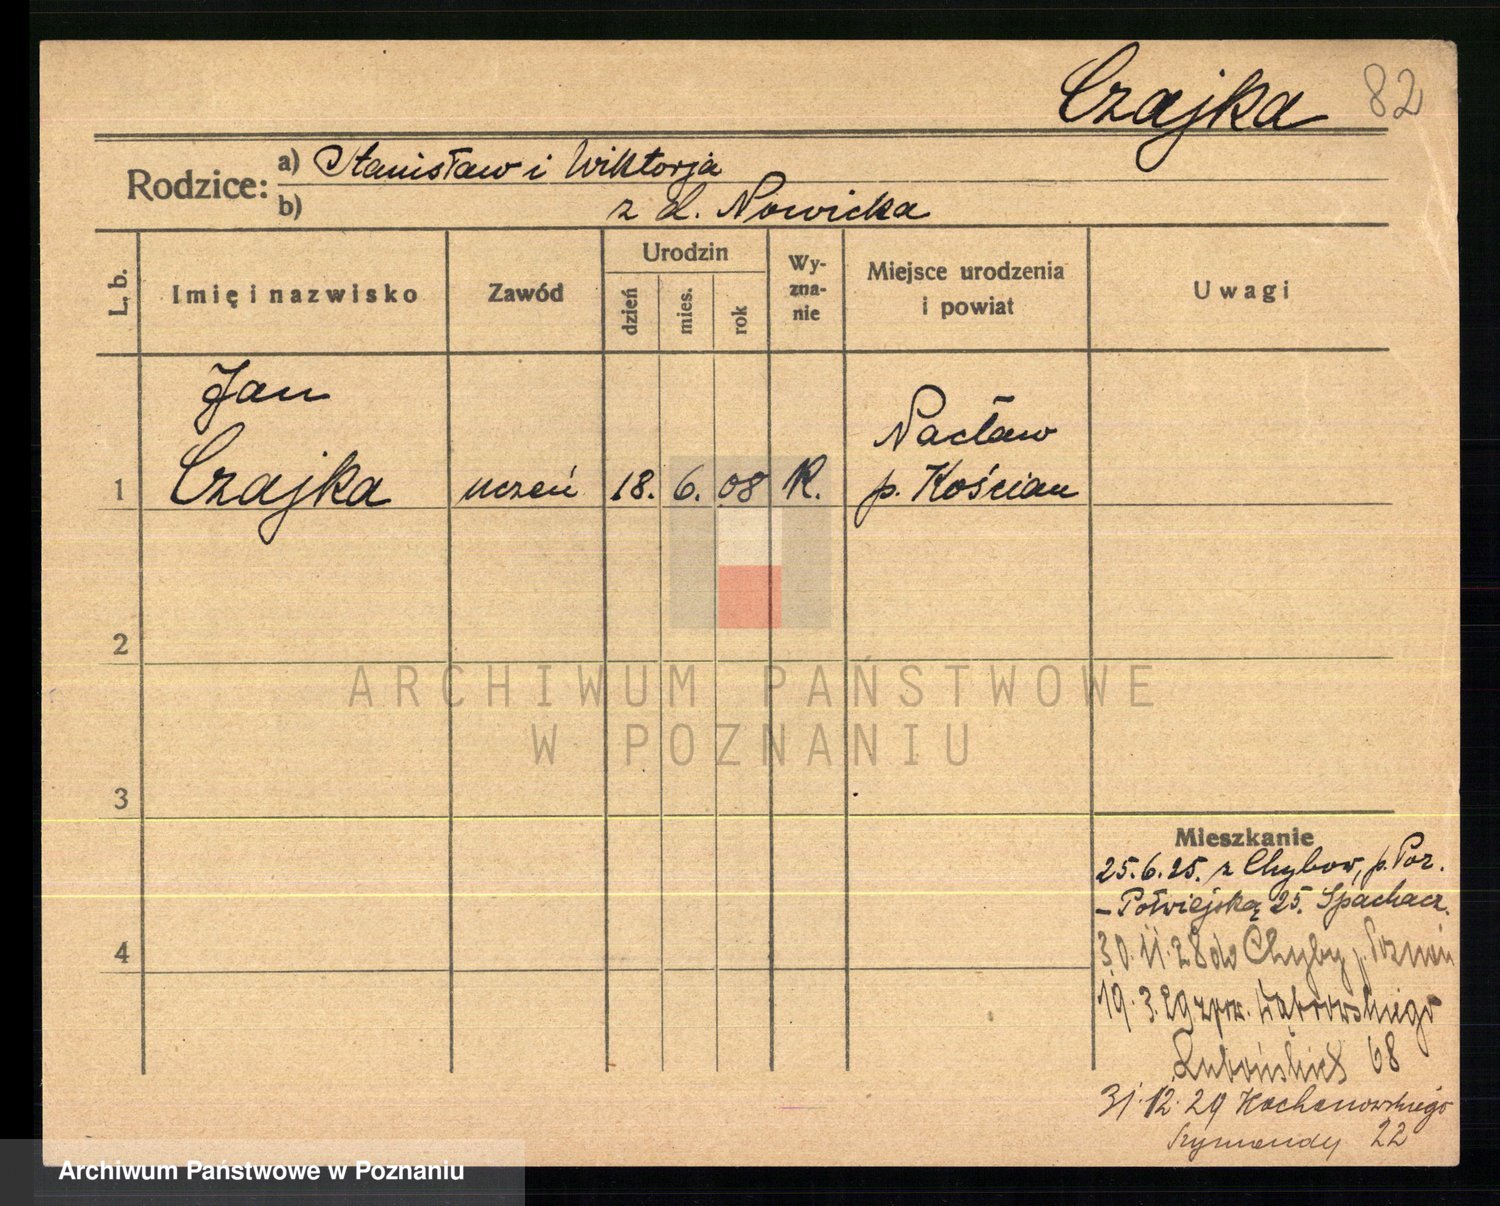 Czajka 82
Rodzice: a) Stanisław i Wiktorja
b) z d. Nowicka
L. b.
Imię i nazwisko
Zawód
Urodzin
dzień
mies.
rok
Wy-
zna-
nie
Miejsce urodzenia
i powiat
Uwagi
Jan
Nacław
1 Czajka uczeń 18. 6. 08 K. p. Kościan
2
ARCHIWUM PAŃSTWOWE
W POZNANIU
3
Mieszkanie
25.6.25. z Chybow, p. Poz.
– Półwiejską 25. Spachacz.
4
30.11.28 do Chyby p. Poznań
19.3.29 zpow. Dąbrowskiego
68
31.12.29 Kochanowskiego
22
Archiwum Państwowe w Poznaniu